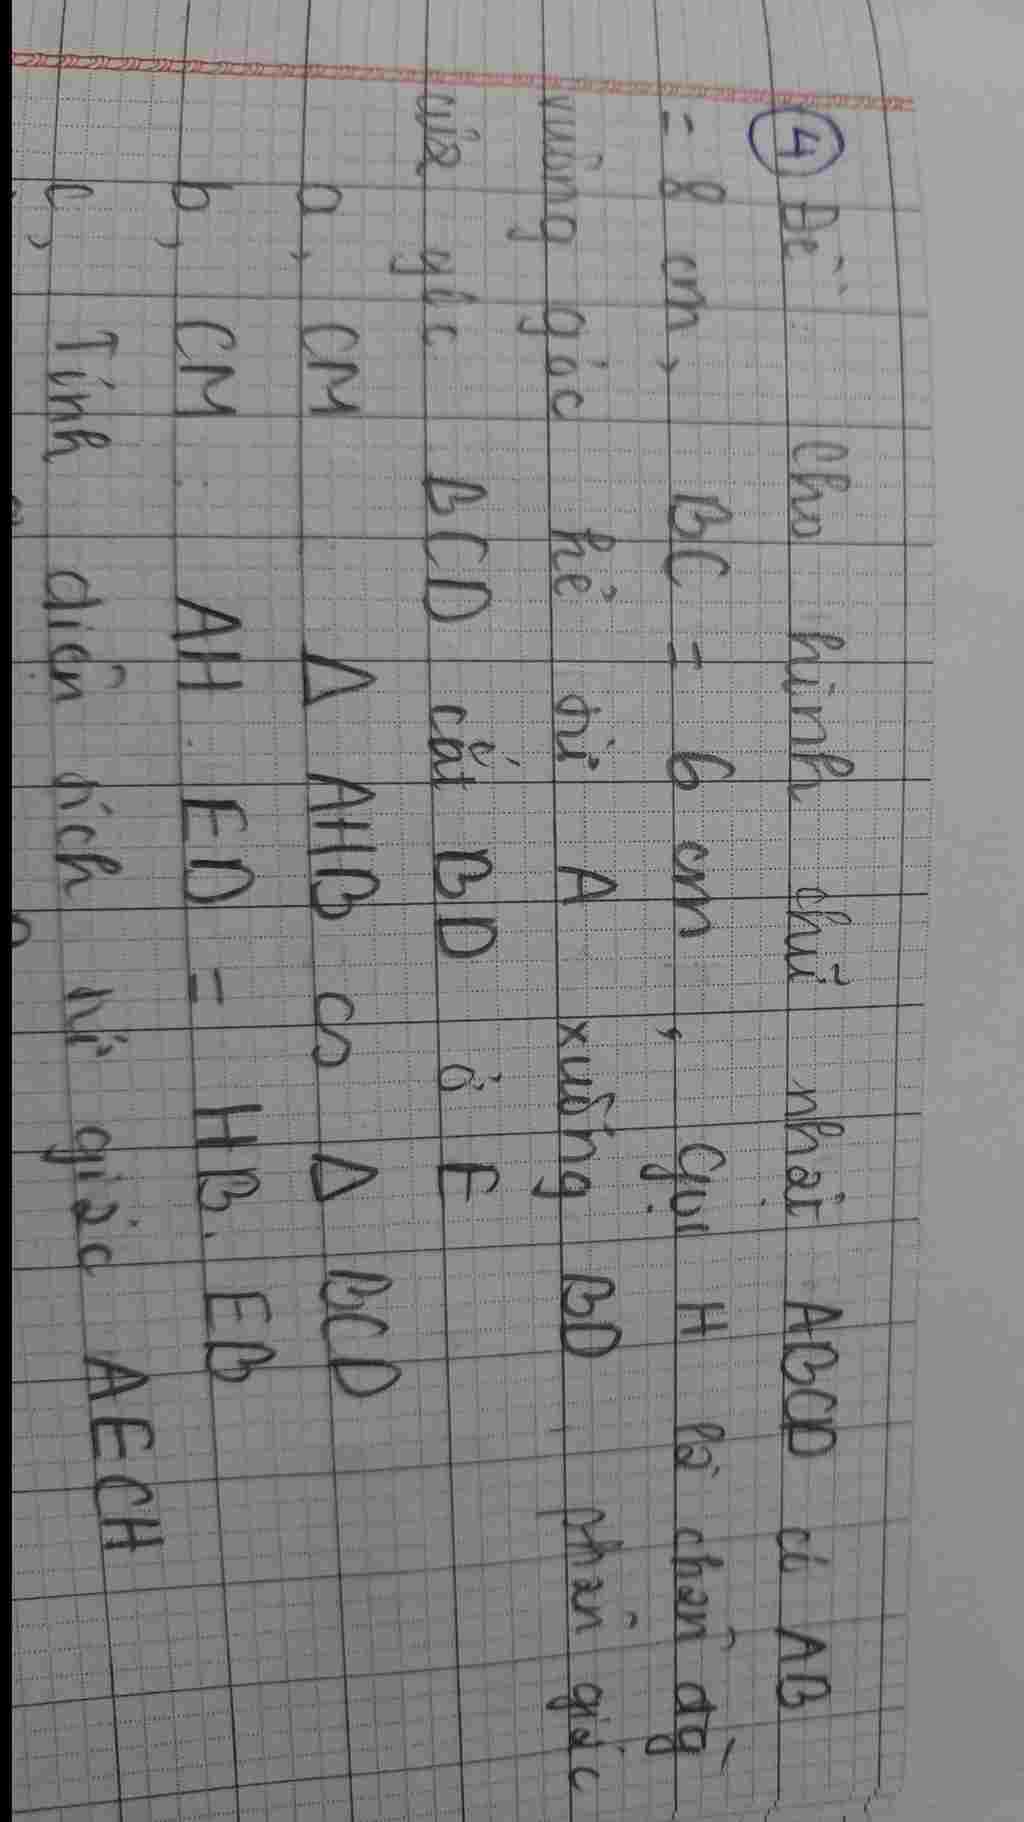 ④ Đề: Cho hình chữ nhật ABCD có AB
= 8 cm, BC = 6 cm, Gọi H là chân đg
vuông góc kẻ từ A xuống BD, phân giác
của góc BCD cắt BD ở E
a, CM Δ AHB ∽ Δ BCD
b, CM: AH . ED = HB. EB
c, Tính diện tích tứ giác AECH